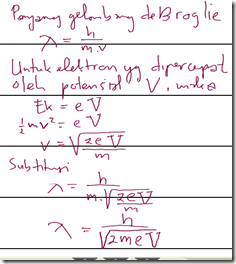 Panjang gelombang de Broglie
λ = h / m.v
Untuk elektron yg dipercepat
oleh potensial V, maka
Ek = e V
½ m v² = e V
v = √(2eV / m)
Substitusi
λ = h / m.√(2eV / m)
λ = h / √(2meV)